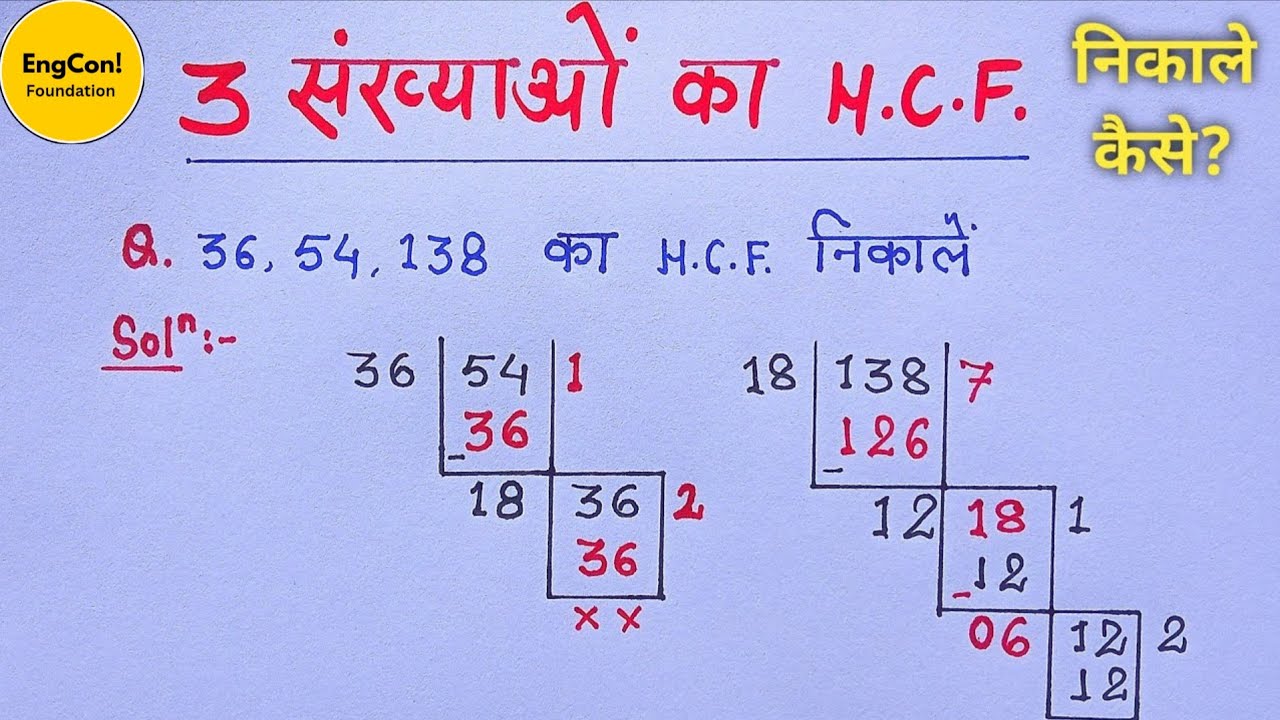 EngCon!
Foundation
3 संख्याओं का H.C.F.
निकाले
कैसे?
Q. 36, 54, 138 का H.C.F. निकालें
Solⁿ:-
36 54 1
- 36
18 36 2
36
× ×
18 138 7
- 126
12 18 1
- 12
06 12 2
12